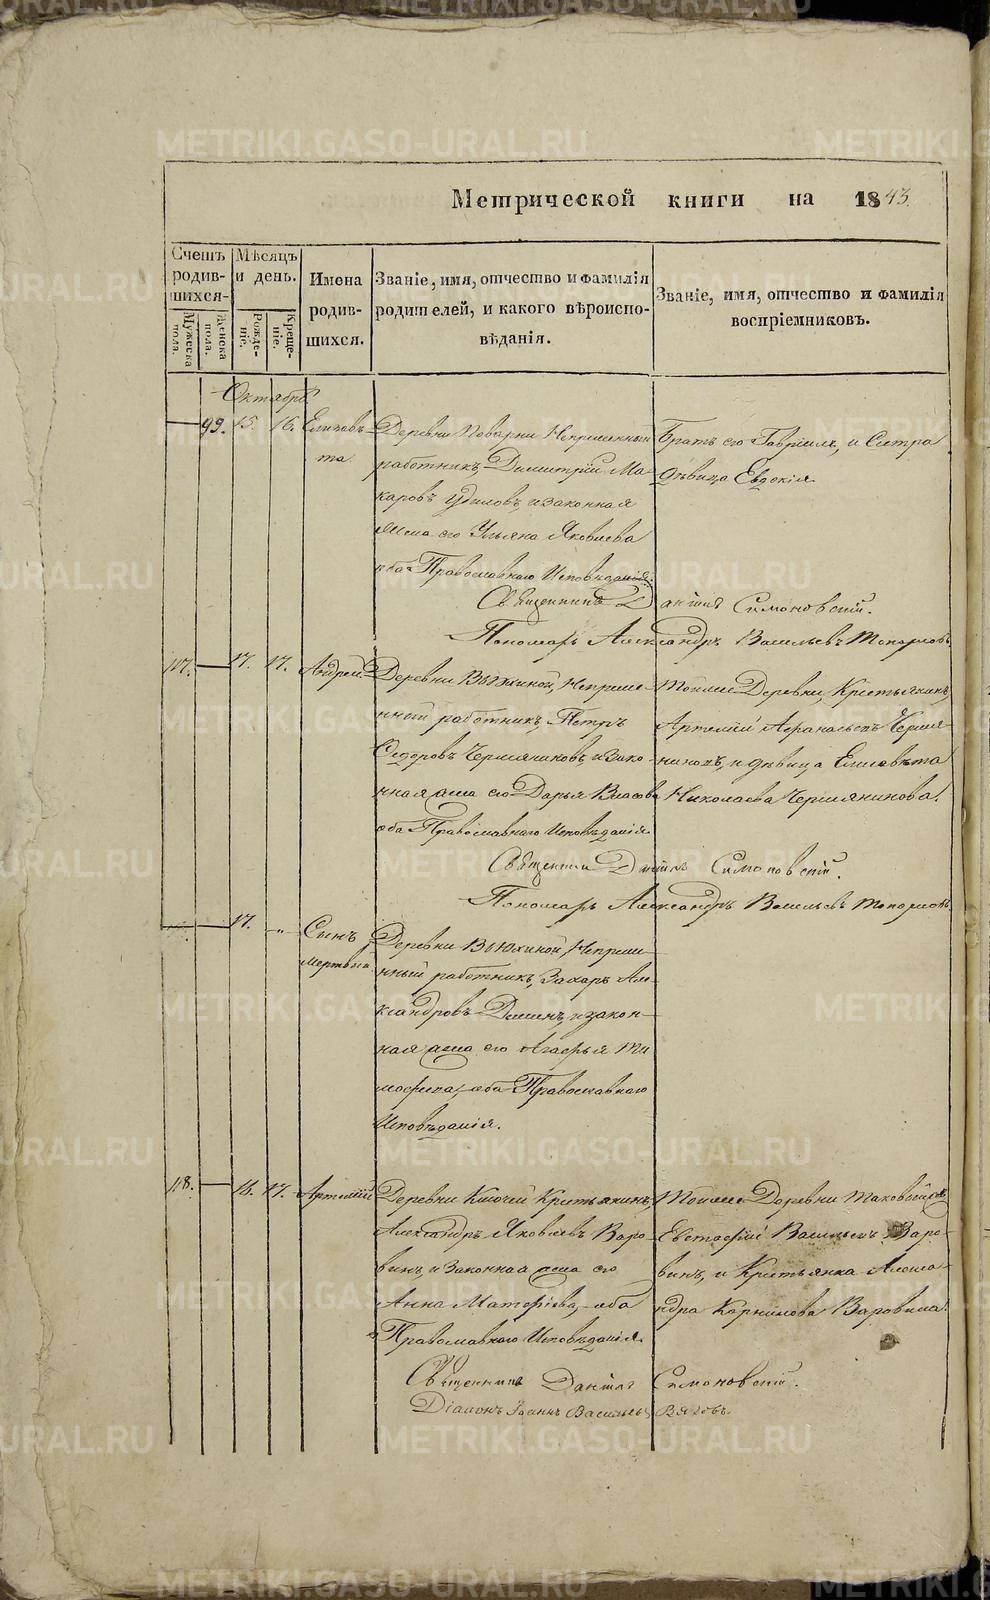 Метрической книги на 1843.
Счетъ родившихся.
Мужеска пола.
Женска пола.
Мѣсяцъ и день.
Рожденіе.
Крещеніе.
Имена родившихся.
Званіе, имя, отчество и фамилія родителей, и какого вѣроисповѣданія.
Званіе, имя, отчество и фамилія воспріемниковъ.
Октябрь
99. 15. 16. Елизавета
Деревни Поварни Непремѣнный
работникъ Димитрій Ма-
каровъ и законная
жена его Ульяна Яковлева
оба Православнаго Исповѣданія.
Братъ его Гавріилъ, и Сестра
дѣвица Евдокія
Священникъ Даніилъ Симоновскій.
Пономарь Александръ Васильевъ Топорковъ
117. 17. 17. Андрей
Деревни Вьюхиной, Непремѣ-
нный работникъ, Петръ
Ѳедоровъ Чермяниновъ, и зако-
нная жена его Дарья Власова
оба Православнаго Исповѣданія
Тойже Деревни, Крестьянинъ,
Артемій Афанасьевъ Чермя-
ниновъ, и дѣвица Елисавета
Николаева Чермянинова.
Священникъ Даніилъ Симоновскій.
Пономарь Александръ Васильевъ Топорковъ
17. " Сынъ
мертвый
Деревни Вьюхиной, Непремѣ-
нный работникъ, Захаръ Але-
ксандровъ и закон-
ная жена его Агафья Ти
мофеева, оба Православнаго
Исповѣданія.
118. 16. 17. Артемій
Деревни Ключей Крестьянинъ,
Александръ Яковлевъ Варо-
винъ, и Законная жена его
Анна Матфіева, оба
Православнаго Исповѣданія.
Тойже Деревни таковойже
Евстафій Васильевъ Варо-
винъ, и Крестьянка Алекса-
ндра Корнилова Варовина.
Священникъ Даніилъ Симоновскій.
Діаконъ Іоаннъ Васильевъ
METRIKI.GASO-URAL.RU